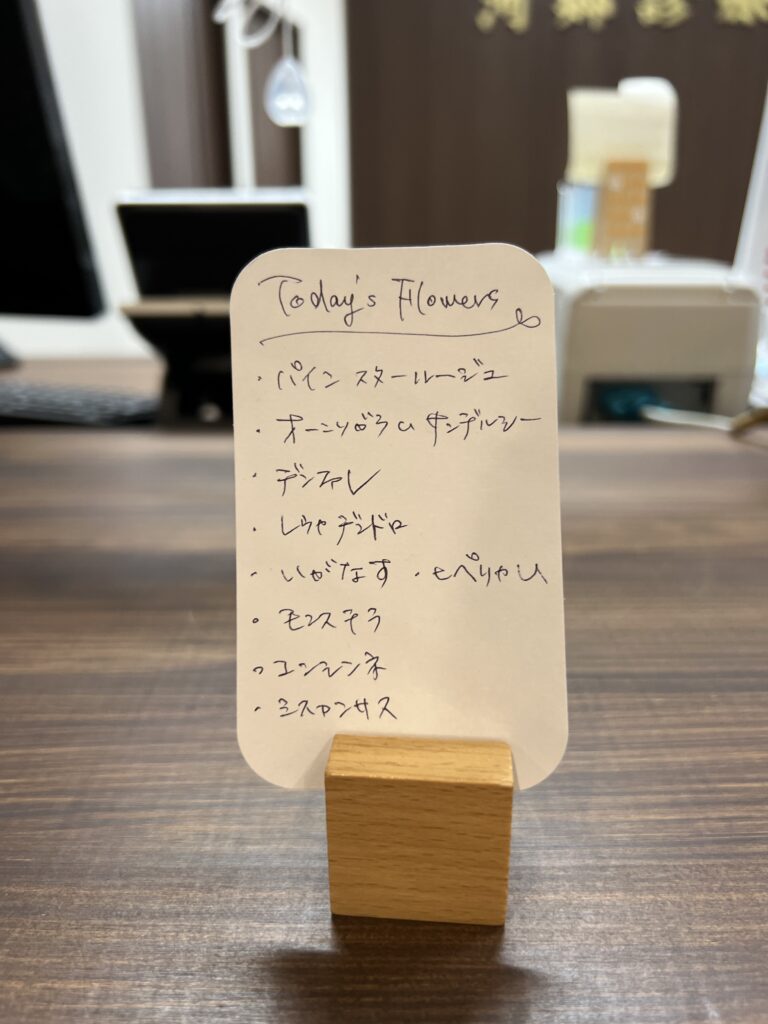 Today's Flowers
・パイン スタールージュ
・オーニソガラム サンデルシー
・デンファレ
・レウカデンドロ
・いがなす ・ヒペリカム
・モンステラ
・コンシンネ
・ミスカンサス